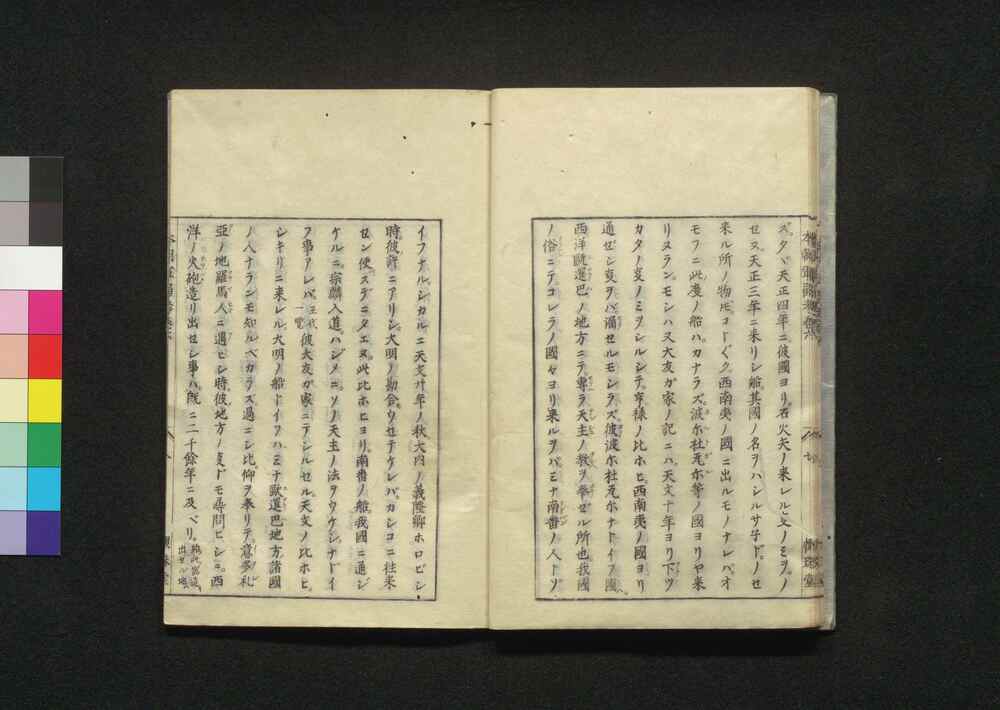 ズ、タヾ天正四年ニ彼國ヨリ石火矢ノ来レル文ノミヲノ
セス、天正三年ニ来リシ船其國ノ名ヲハシルサ子ド、ノセ
来ル所ノ物ドモコトゞク西南夷ノ國ニ出ルモノナレバ、オ
モフニ此度ノ船ハ、カナラズ波尓杜瓦尓等ノ國ヨリヤ来
リヌラン、モシハ又大友ガ家ノ記ニハ天文十年ヨリ下ツ
カタノ支ノミヲシルシテ、亨禄ノ比ホヒ、西南夷ノ國ヨリ
通ゼシ支ヲバ漏セルモシラズ、彼波尓杜瓦尓ナドイフ國ハ、
西洋歐邏巴ノ地方ニテ、專ラ天主ノ教ヲ奉ゼル所也、我國
ノ俗ニテ、コレラノ國々ヨリ来ルヲバミナ南番ノ人トゾ
イフナル、シカルニ天文廿年ノ秋、大内ノ義隆卿ホロビシ
時、彼許ニアリシ大明ノ勘合、ウセテケレバ、カシコニ往来
セン便スデニタエヌ、此比ホヒヨリ、南番ノ船我國ニ通ジ
ケルニ、宗麟入道、ハジメニ、ソノ天主ノ法ヲウケシナドイ
フ事アレバ、彼大友ガ家ニテシルセル、天文ノ比ホヒ、
シキリニ来レル大明ノ船トイフハ、ミナ歐邏巴地方諸國
ノ人ナランモ知ルベカラズ、過ニシ比、仰ヲ奉リテ、意多礼
亞ノ地羅馬人ニ遇ヒシ時、彼地方ノ支ドモ尋問ヒシニ、西
洋ノ火砲造リ出セシ事ハ、既ニ二千餘年ニ及ベリ、